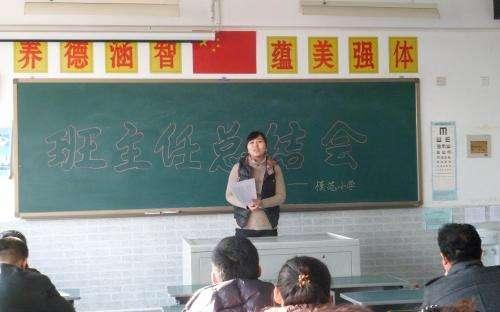 养德涵智
蕴美强体
班主任总结会
——模范小学